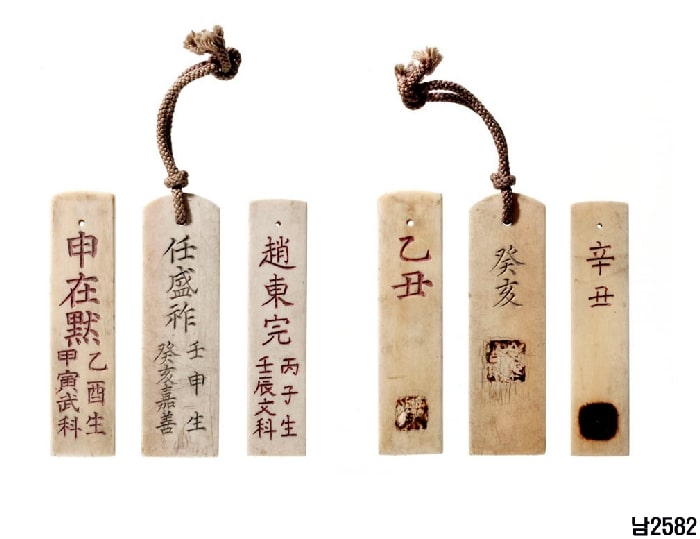 申在默
乙酉生
甲寅武科
任盛祚
壬申生
癸亥嘉善
趙東完
丙子生
壬辰文科
乙丑
癸亥
辛丑
남2582